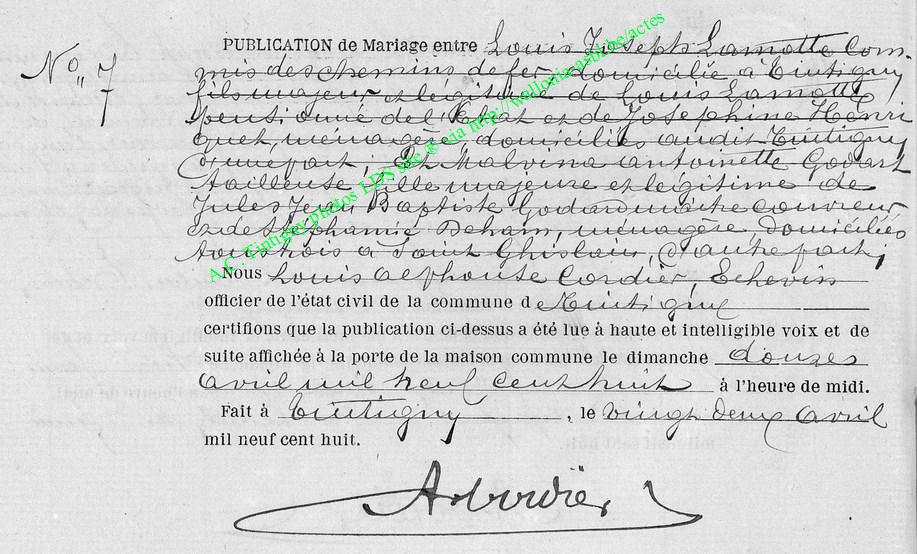 No 7
PUBLICATION de Mariage entre Louis Joseph Lamotte Com
mis des chemins de fer, domicilié à Tintigny
fils majeur et légitime de Louis Lamotte
pentionné de l'Etat et de Joséphine Henri
quet, ménagère, domiciliés audit Tintigny
d'une part, Et Malvina Antoinette Godart
tailleuse, fille majeure et légitime de
Jules Jean Baptiste Godard maître couvreur
et de Stéphanie Deham, ménagère, domiciliés
tous trois à Saint Ghislain, d'autre part;
Nous Louis Alphonse Cordier, Echevin
officier de l'état civil de la commune de Tintigny
certifions que la publication ci-dessus a été lue à haute et intelligible voix et de
suite affichée à la porte de la maison commune le dimanche douzes
avril mil neuf cent huit à l'heure de midi.
Fait à Tintigny, le vingt deux avril
mil neuf cent huit.
A. Cordier
A.C. Tintigny photos LDS site ® via http://wallonia-asbl.be/actes